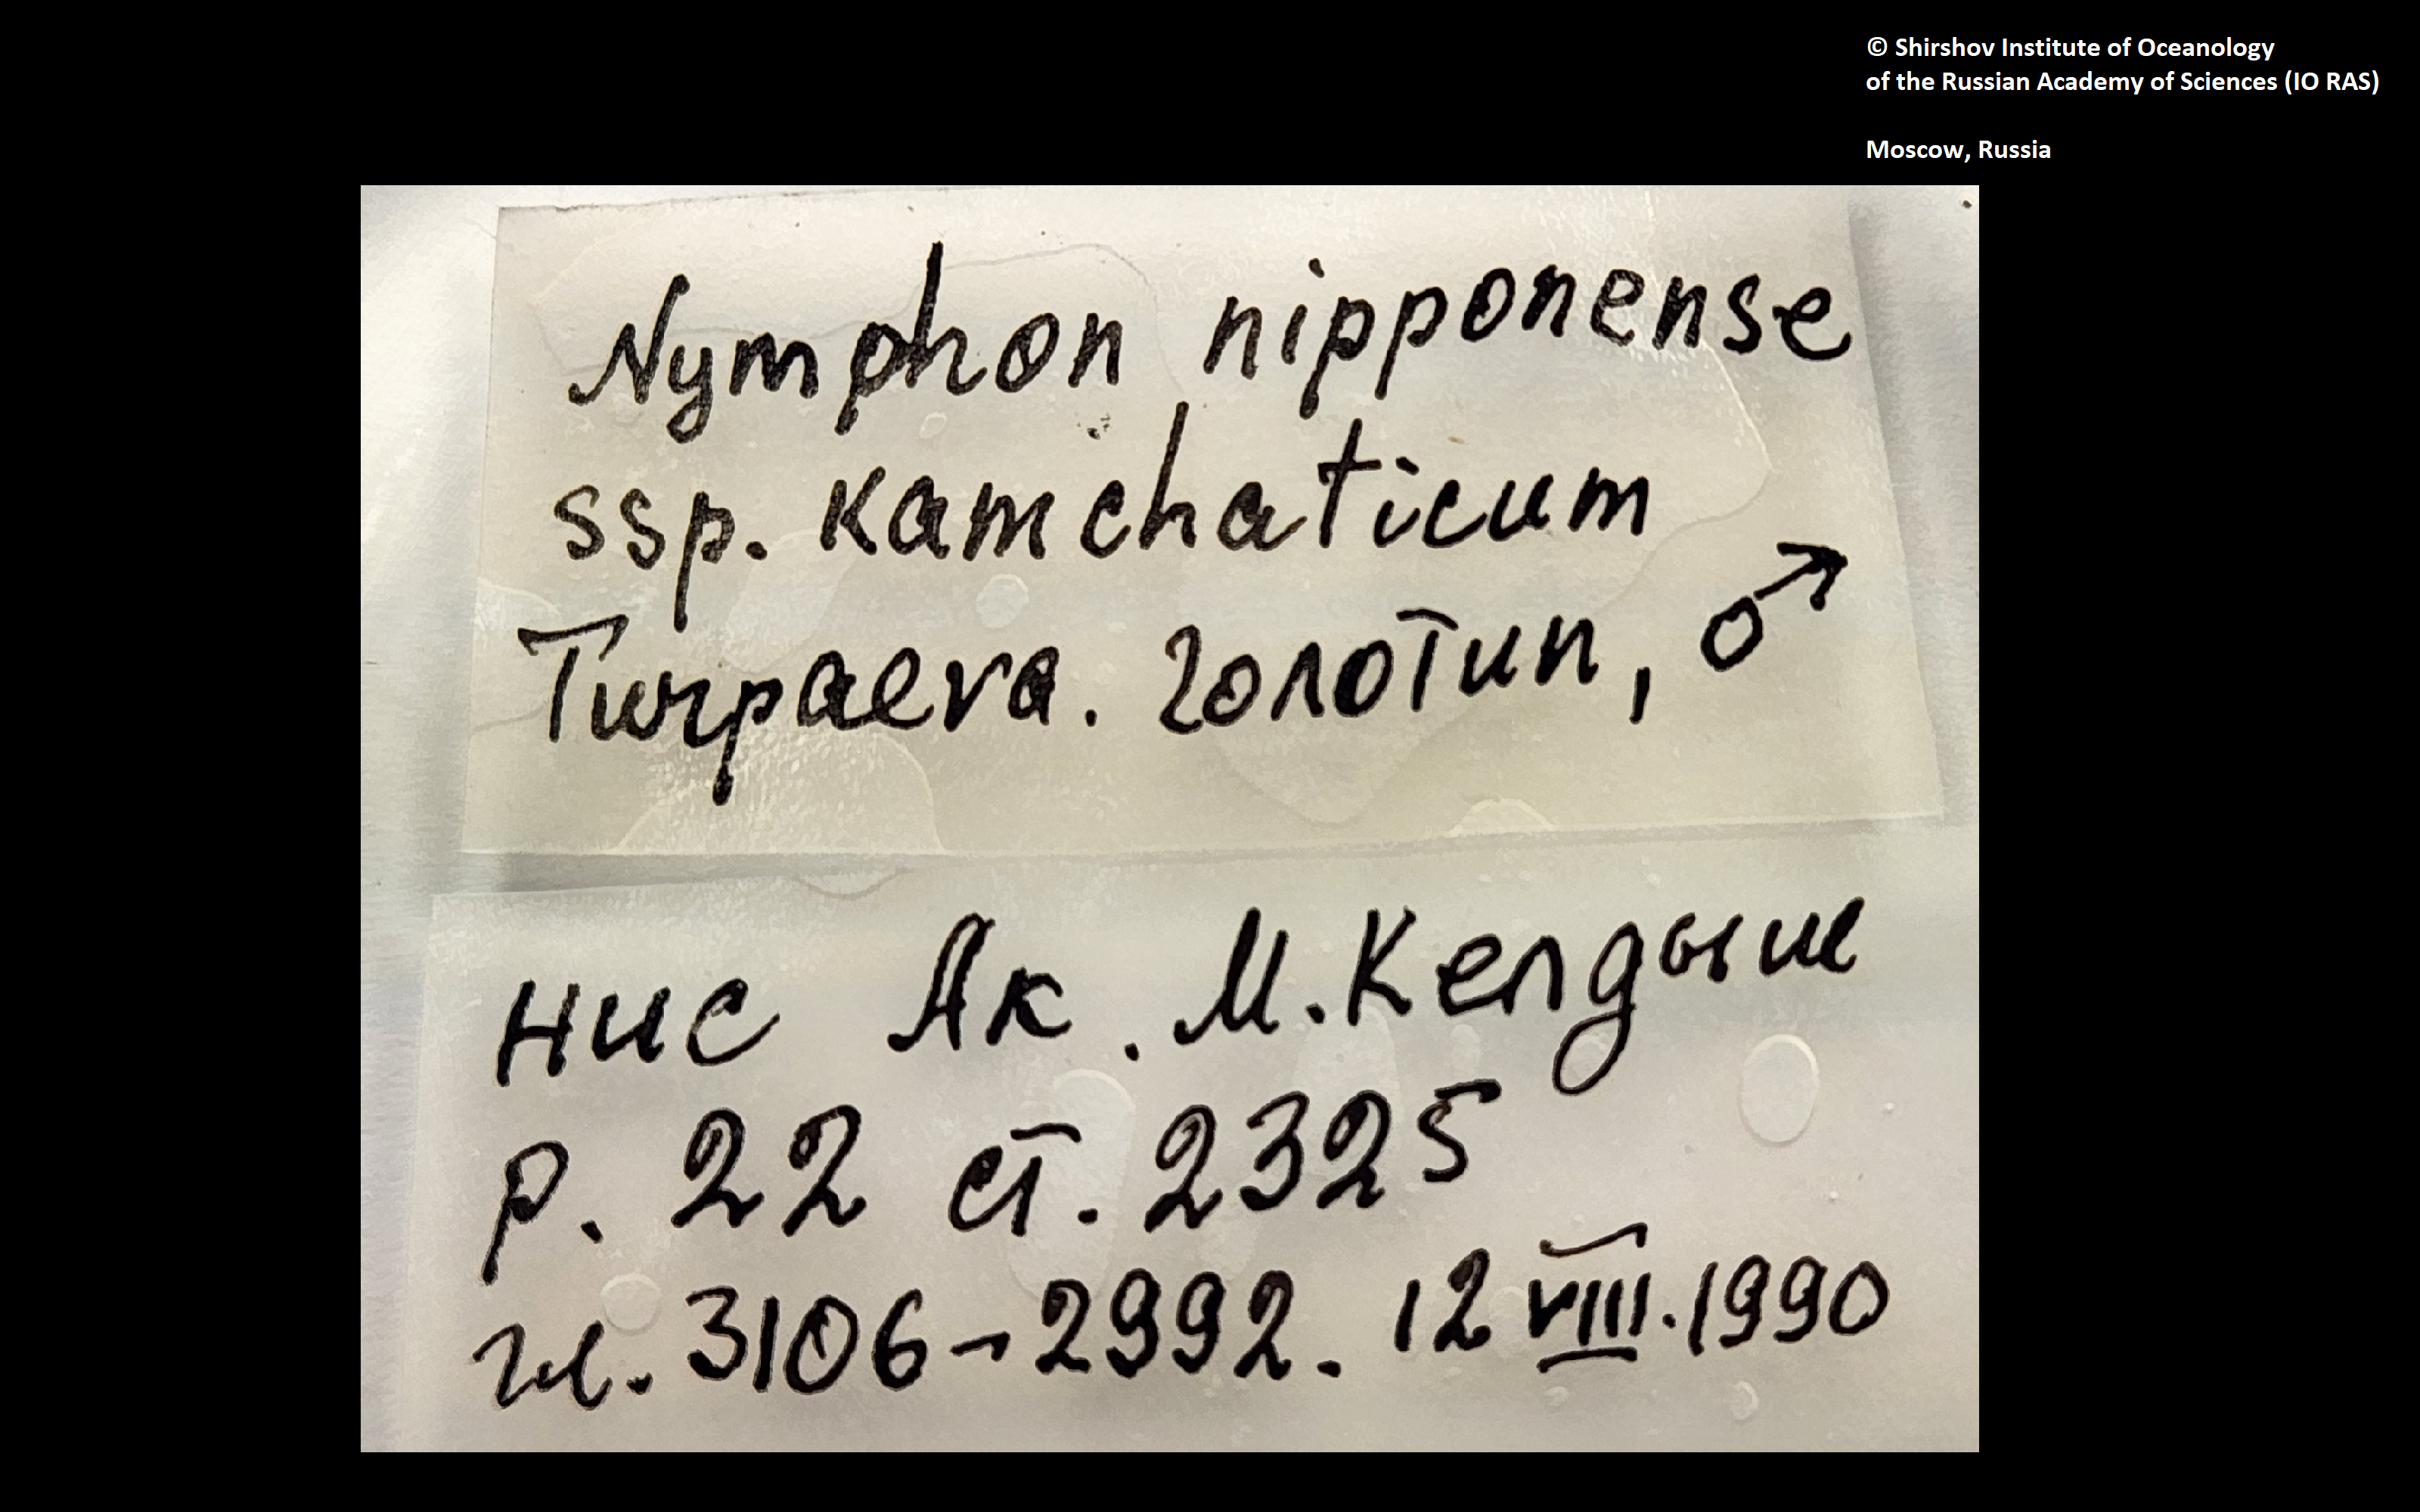 © Shirshov Institute of Oceanology
of the Russian Academy of Sciences (IO RAS)
Moscow, Russia
Nymphon nipponense
ssp. kamchaticum
Turpaeva. Голотип, ♂
НИС Ак. М. Келдыш
р. 22 ст. 2325
гл. 3106-2992. 12 VIII. 1990